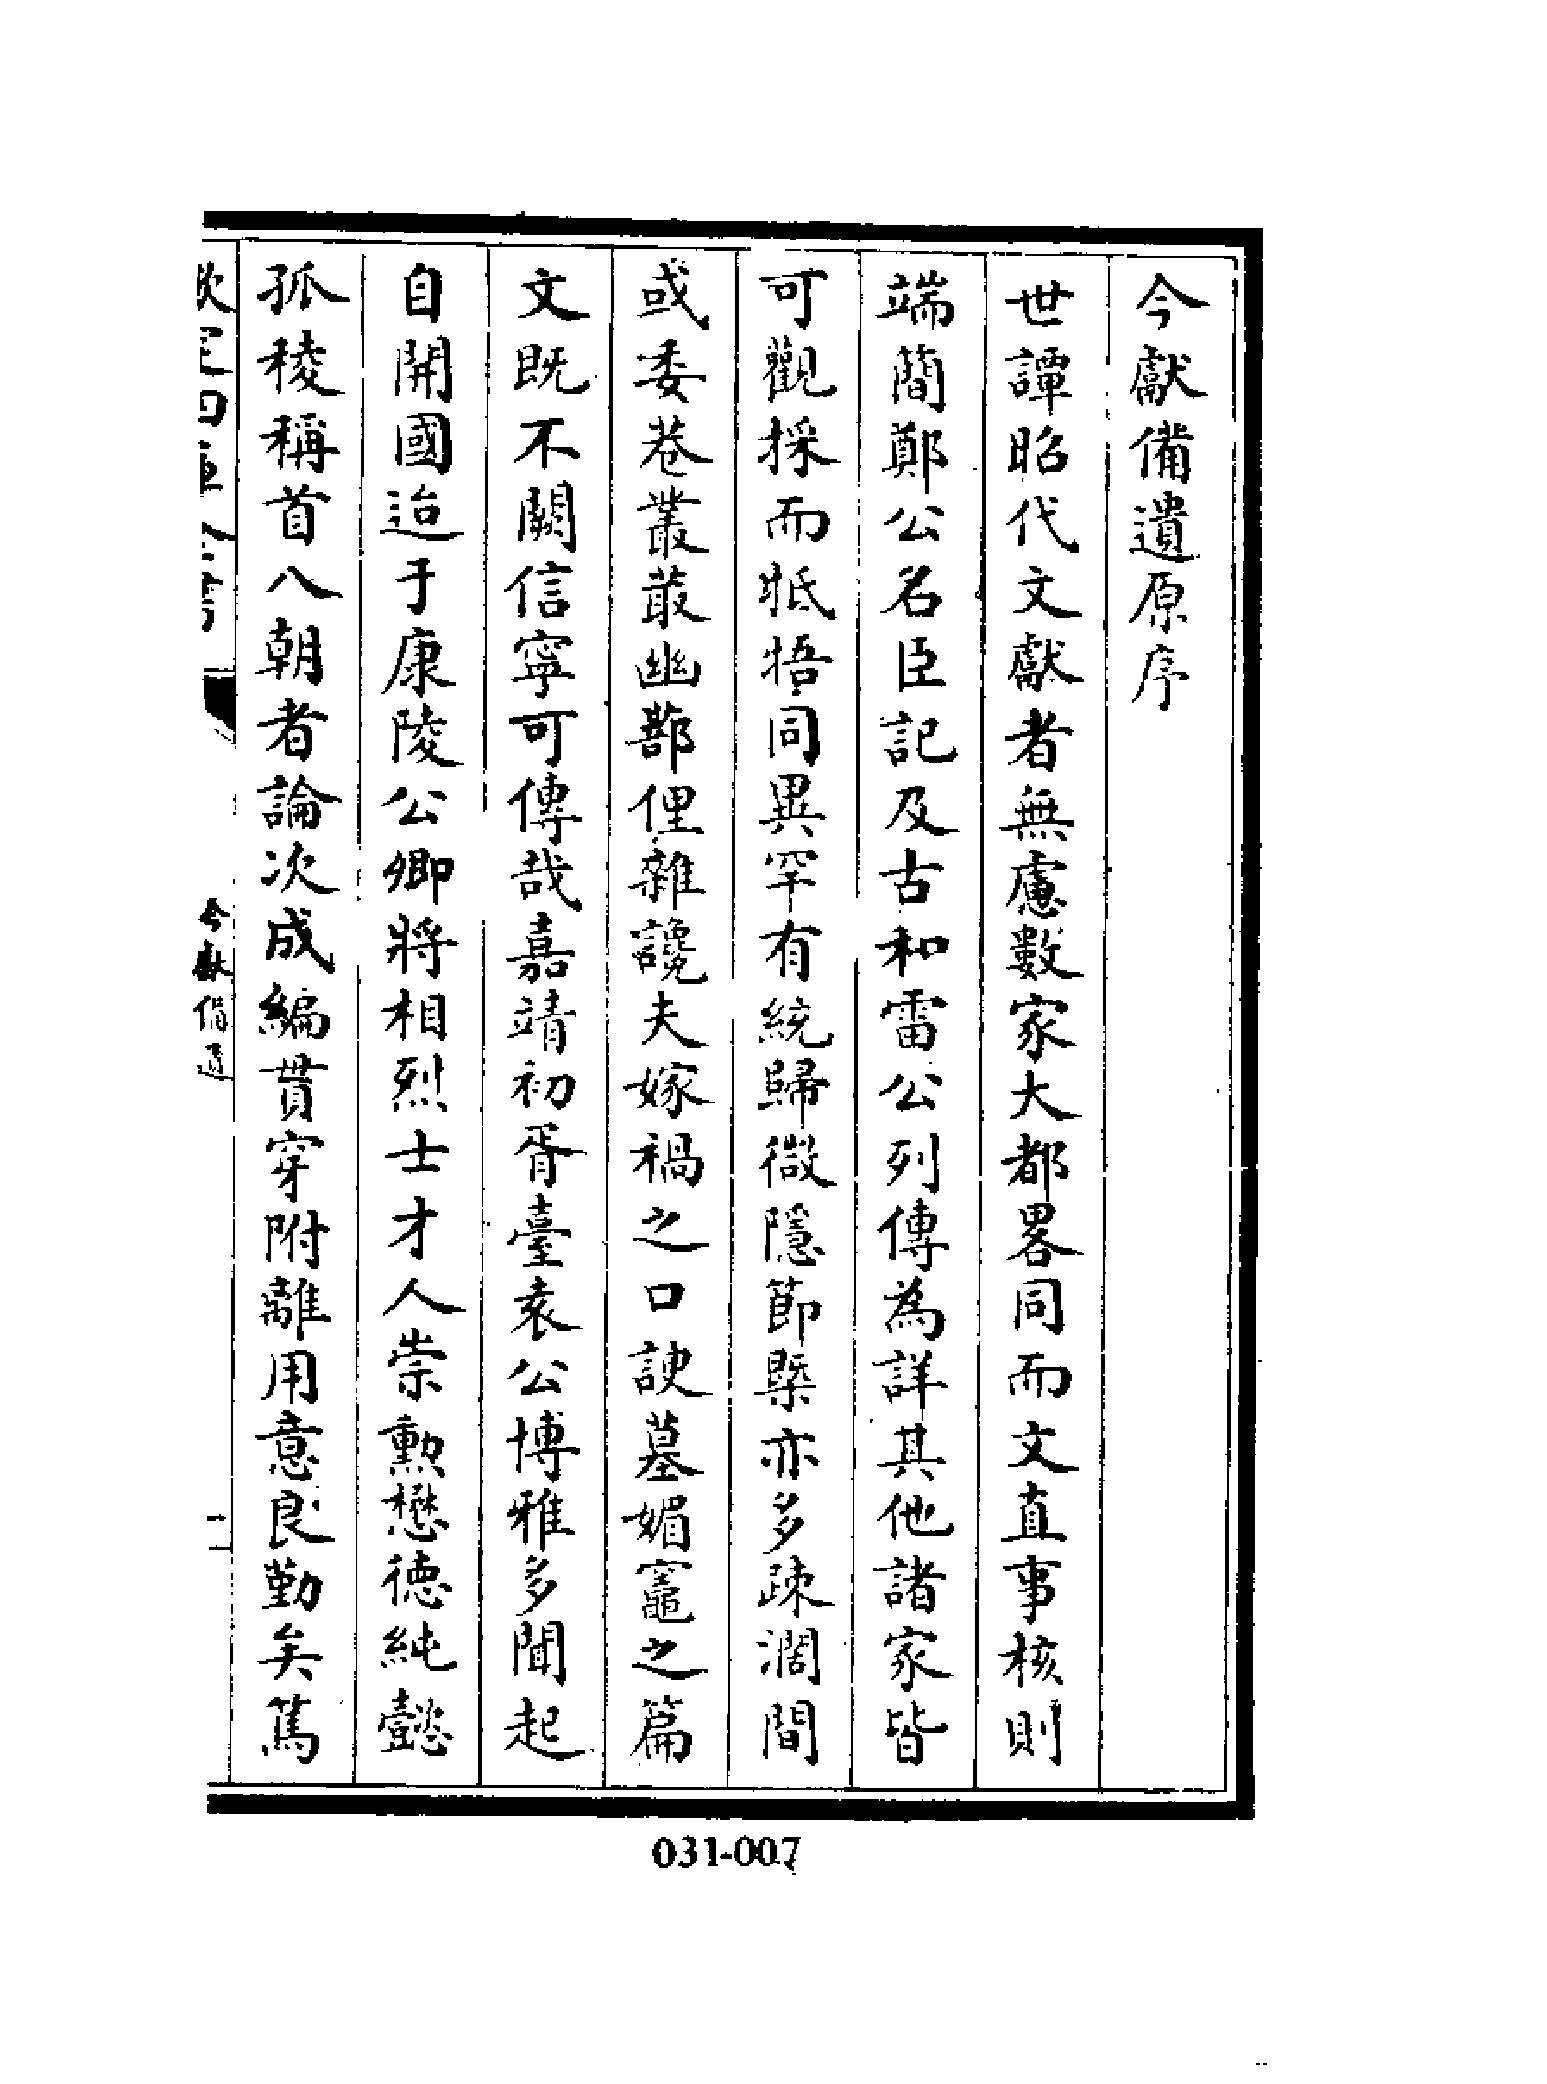 今獻備遺原序
世譚昭代文獻者無慮數家大都畧同而文直事核則
端簡鄭公名臣記及古和雷公列傳為詳其他諸家皆
可觀採而牴牾同異罕有統歸微隱節槩亦多疎濶間
或委巷叢菆幽鄙俚雜讒夫嫁禍之口諛墓媚竈之篇
文既不闕信寧可傳哉嘉靖初胥臺袁公博雅多聞起
自開國迨于康陵公卿將相烈士才人崇勲懋徳純懿
孤稜稱首八朝者論次成編貫穿附離用意良勤矣篤
欽定四庫全書
今獻備遺
一
031-007